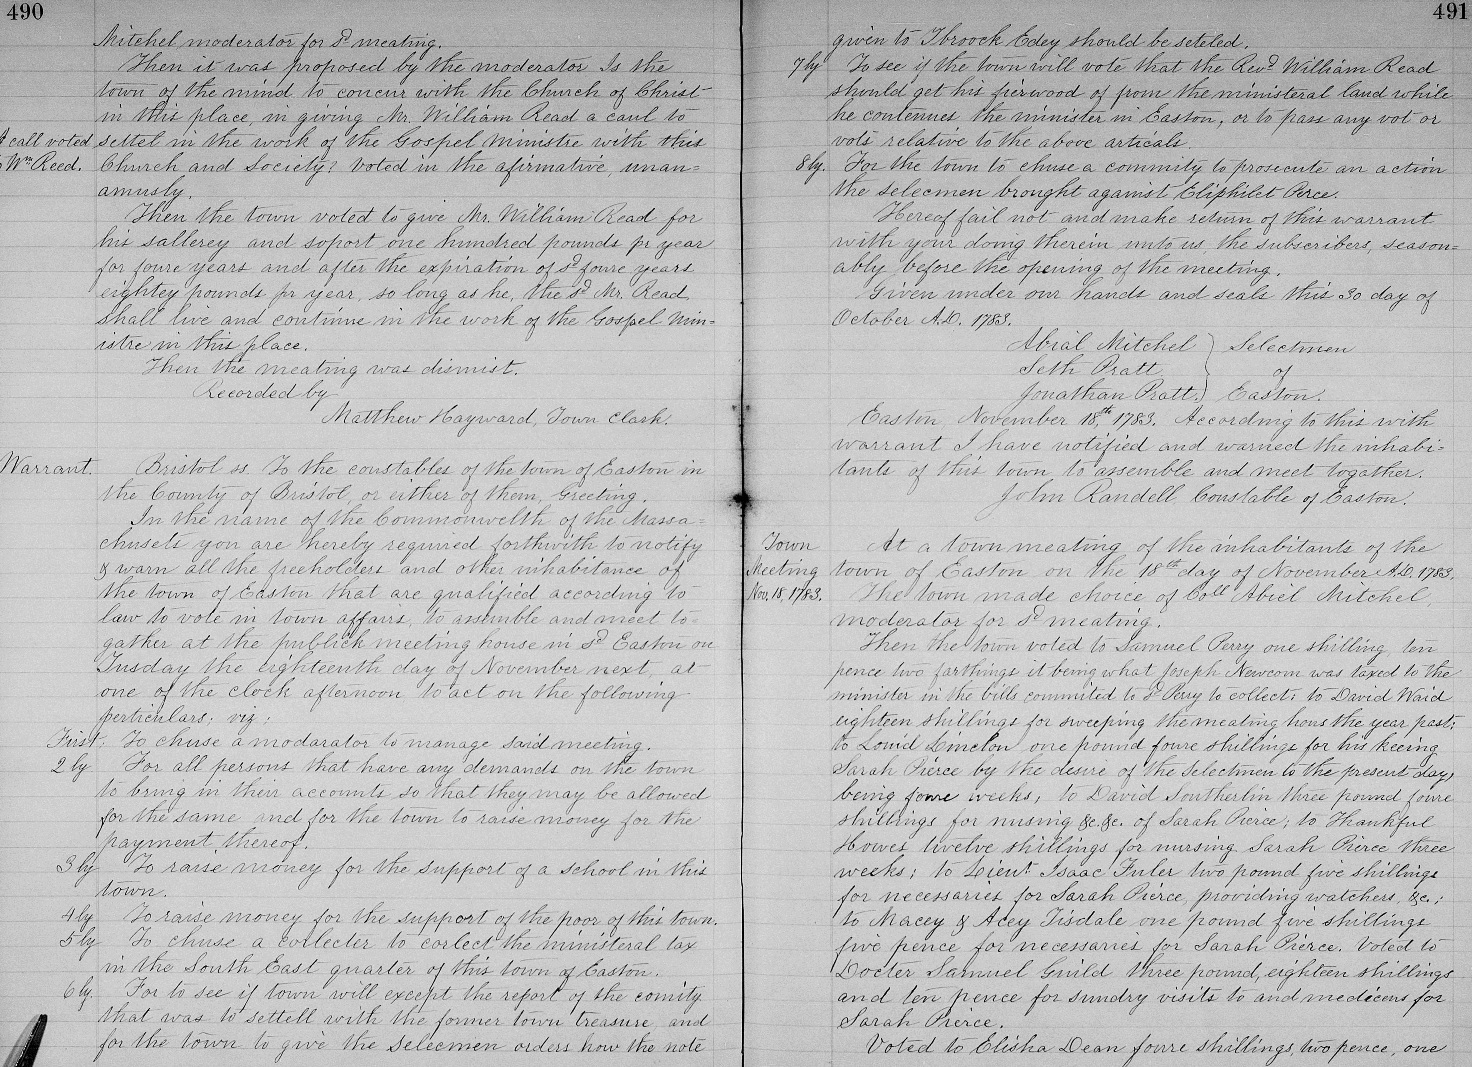 490
Mitchel moderator for sd meating.
Then it was proposed by the moderator Is the
town of the mind to concur with the Church of Christ
in this place, in giving Mr. William Read a caul to
A call voted
Wm Reed.
settel in the work of the Gospel Ministre with this
Church and Society? voted in the afirmative, unan=
amusly.
Then the town voted to give Mr. William Read for
his sallerey and soport one hundred pounds pr year
for foure years and after the expiration of sd foure years
eightey pounds pr year, so long as he, the sd Mr. Read
shall live and continue in the work of the Gospel Min=
istre in this place.
Then the meating was dismist.
Recorded by
Matthew Hayward, Town Clark.
Warrant.
Bristol ss. To the constables of the town of Easton in
the County of Bristol, or either of them, Greeting.
In the name of the Commonwelth of the Massa=
chusets you are hereby required forthwith to notify
& warn all the freeholders and other inhabitance of
the town of Easton that are qualified according to
law to vote in town affairs, to assemble and meet to=
gather at the publick meeting house in sd Easton on
Tusday the eighteenth day of November next, at
one of the clock afternoon to act on the following
perticulars: viz:
First: To chuse a modarator to manage said meeting.
2 ly For all persons that have any demands on the town
to bring in their accounts so that they may be allowed
for the same and for the town to raise money for the
payment thereof.
3 ly To raise money for the support of a school in this
town.
4 ly To raise money for the support of the poor of this town.
5 ly To chuse a collecter to corlect the ministeral tax
in the South East quarter of this town of Easton.
6 ly. For to see if town will except the report of the comity
that was to settell with the former town treasure, and
for the town to give the selecmen orders how the note
491
given to Ibroock Edey should be seteled.
7 ly To see if the town will vote that the Revd William Read
should get his fierwood of from the ministeral land while
he contenues the minister in Easton, or to pass any vot or
vots relative to the above articals.
8 ly. For the town to chuse a commity to prosecute an action
the selecmen brought against Eliphilet Perce.
Hereof fail not and make return of this warrant
with your doing therein unto us the subscribers, season=
ably before the opening of the meeting.
Given under our hands and seals this 30 day of
October A.D. 1783.
Abial Mitchel } Selectmen
Seth Pratt of
Jonathan Pratt. Easton.
Easton, November 18th, 1783. According to this with
warrant I have notified and warned the inhabi=
tants of this town to assemble and meet togather.
John Randell Constable of Easton.
Town
Meeting
Nov. 18, 1783.
At a town meating of the inhabitants of the
town of Easton on the 18th day of November A.D. 1783.
The town made choice of Coll Abiel Mitchel,
moderator for sd meating.
Then the town voted to Samuel Perry one shilling, ten
pence two farthings it being what Joseph Newcom was taxed to the
minister in the bills commited to sd Perry to collect; to David Waid
eighteen shillings for sweeping the meating hous the year past;
to Lowd Linclon one pound foure shillings for his keeing
Sarah Pierce by the desire of the Selectmen to the present day,
being foure weeks; to David Southerlin three pound foure
shillings for nusing &c.&c. of Sarah Pierce; to Thankful
Howes twelve shillings for nursing Sarah Pierce three
weeks; to Lieut Isaac Fuler two pound five shillings
for necessaries for Sarah Pierce, providing watchers, &c.;
to Macey & Acey Tisdale one pound five shillings
five pence for necessaries for Sarah Pierce. Voted to
Docter Samuel Guild three pound, eighteen shillings
and ten pence for sundry visits to and medecens for
Sarah Pierce.
Voted to Elisha Dean foure shillings, two pence, one